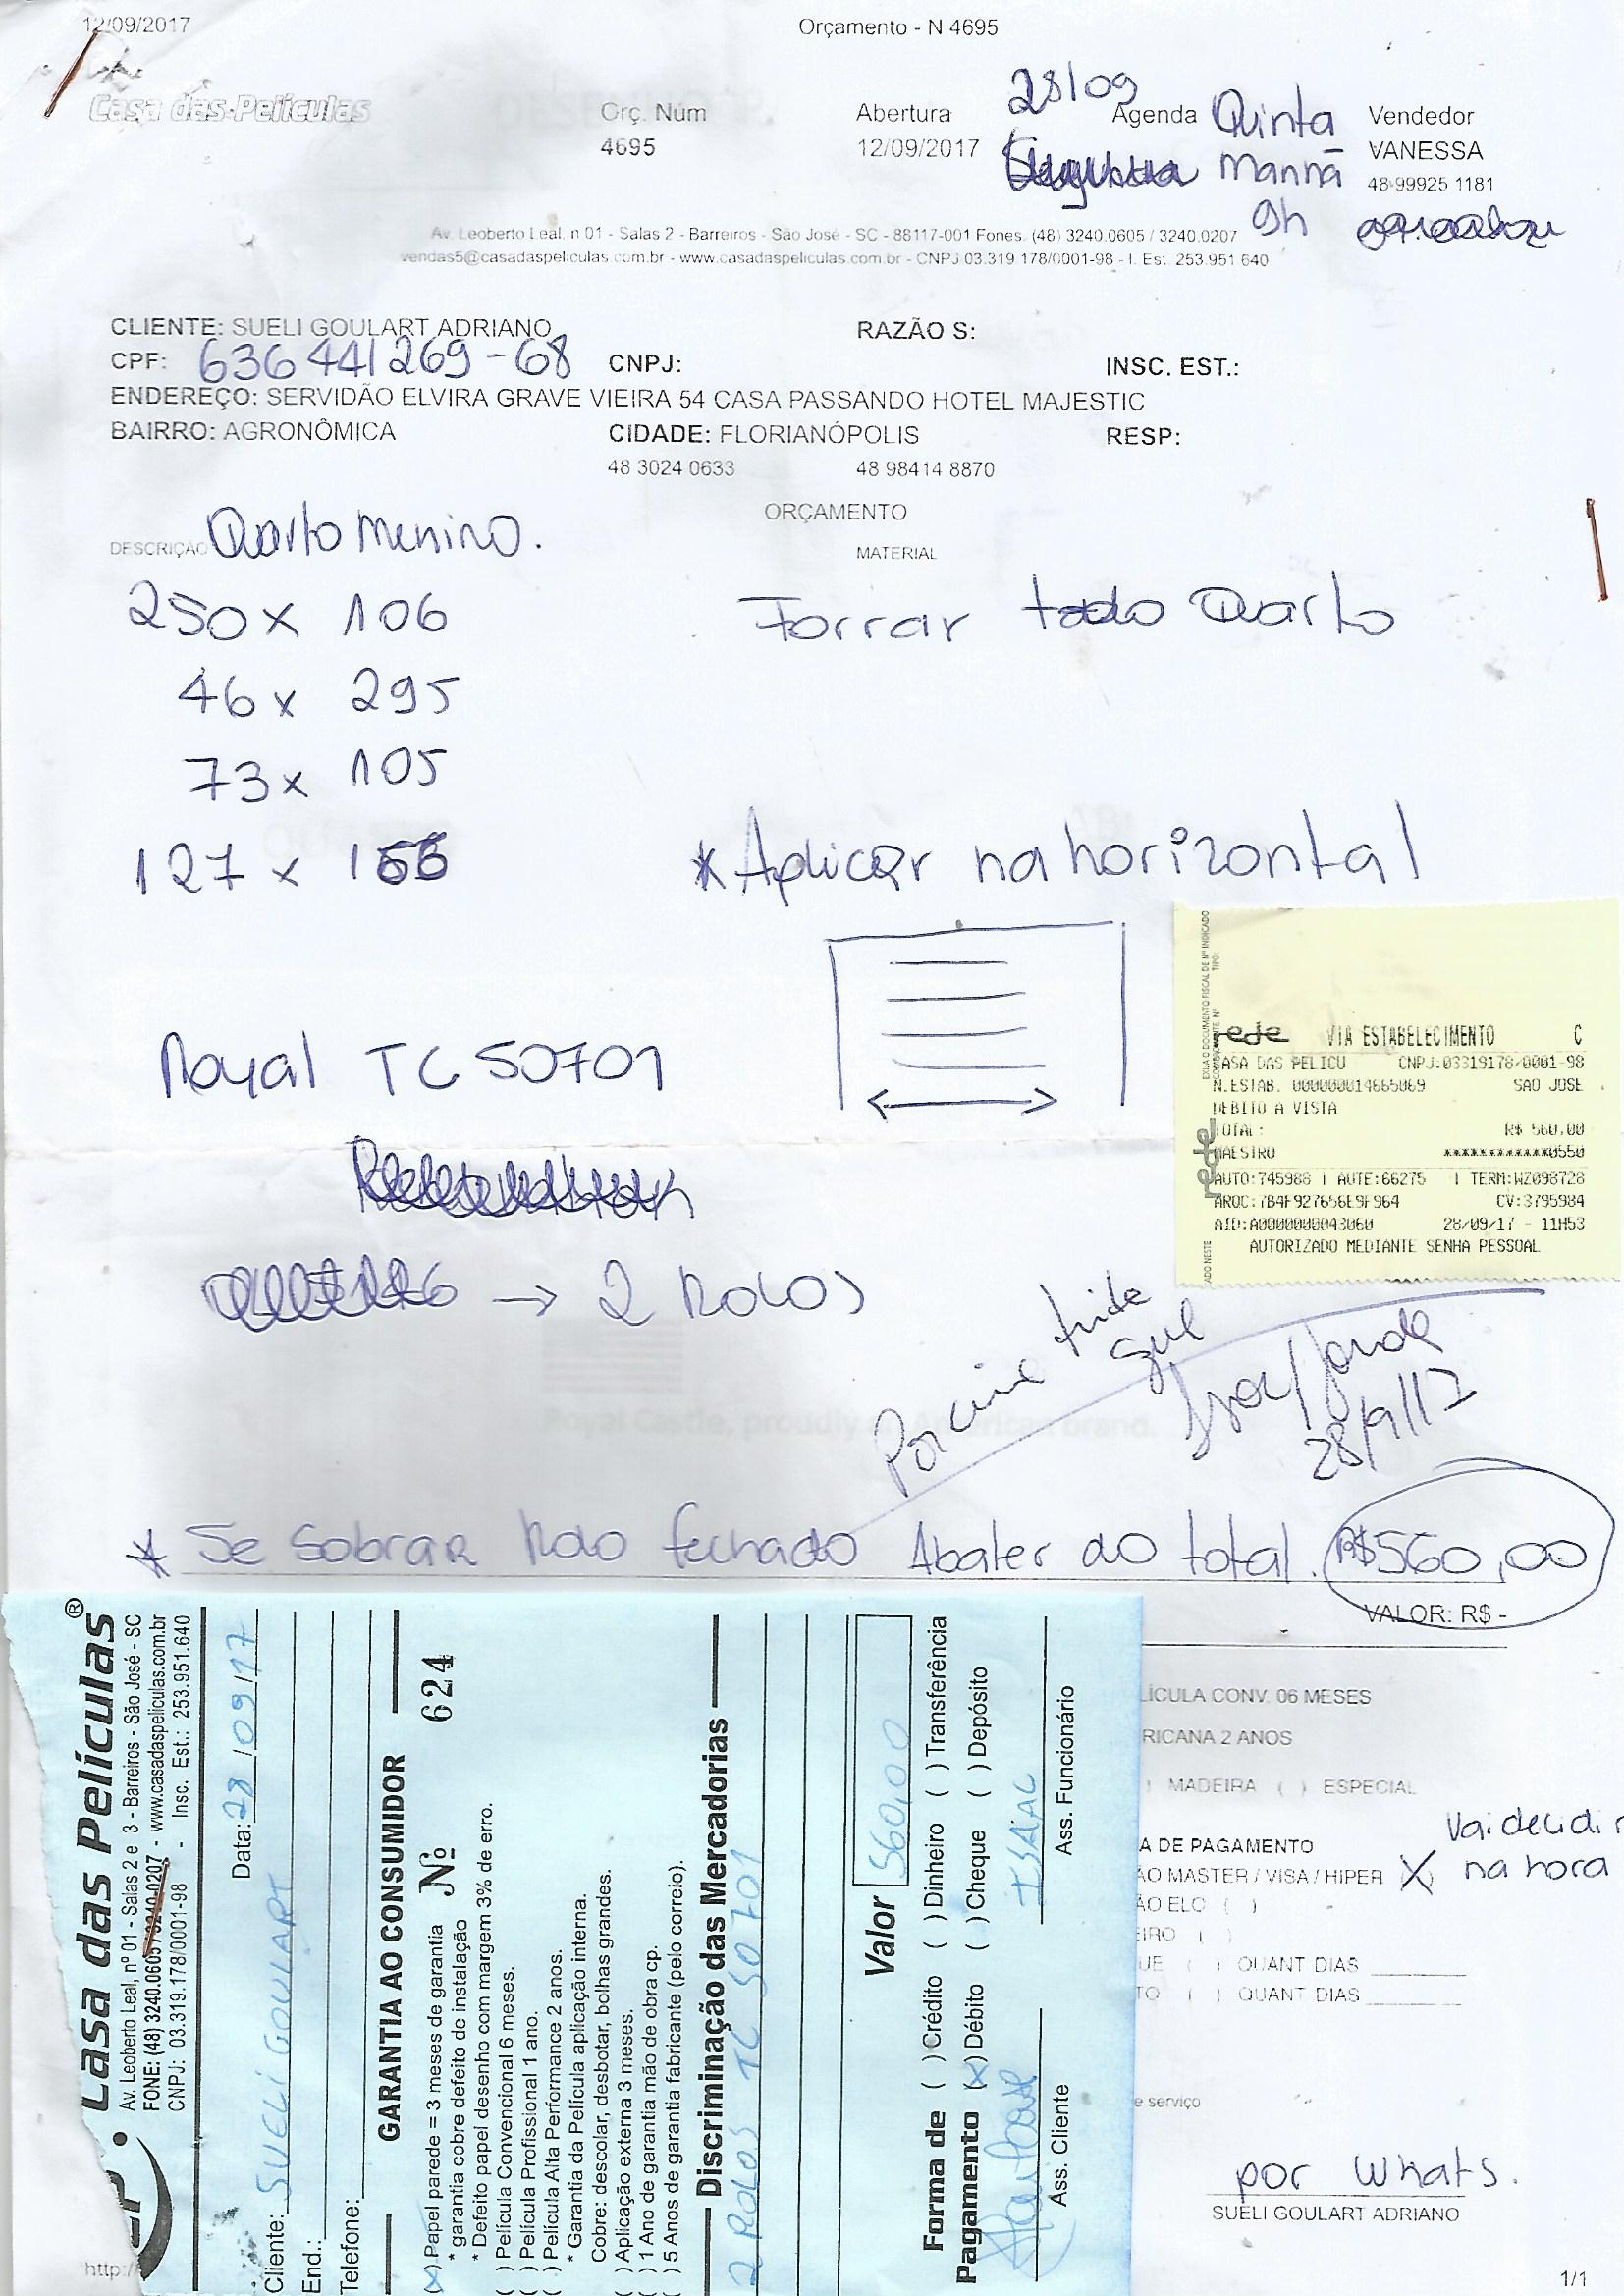 12/09/2017
Orçamento - N 4695
Casa das Películas
Orç. Núm
4695
Abertura
12/09/2017
28/09
Agenda Quinta
Manhã
9h
Vendedor
VANESSA
48-99925 1181
Av. Leoberto Leal, n 01 - Salas 2 - Barreiros - São José - SC - 88117-001 Fones. (48) 3240.0605 / 3240.0207
vendas5@casadaspeliculas.com.br - www.casadaspeliculas.com.br - CNPJ 03.319.178/0001-98 - I. Est. 253.951.640
CLIENTE: SUELI GOULART ADRIANO
RAZÃO S:
CPF: 636 441 269-68
CNPJ:
INSC. EST.:
ENDEREÇO: SERVIDÃO ELVIRA GRAVE VIEIRA 54 CASA PASSANDO HOTEL MAJESTIC
BAIRRO: AGRONÔMICA
CIDADE: FLORIANÓPOLIS
RESP:
48 3024 0633
48 98414 8870
ORÇAMENTO
DESCRIÇÃO
Quarto Menino.
MATERIAL
250 x 106
Forrar todo Quarto
46 x 295
73 x 105
127 x
* Aplicar na horizontal
Royal TC 50701
→ 2 Rolos
rede VIA ESTABELECIMENTO C
CASA DAS PELICU CNPJ:03319178/0001-98
N.ESTAB. 000000014665069 SAO JOSE
DEBITO A VISTA
TOTAL: R$ 560,00
MAESTRO ************0550
AUTO:745988 | AUTE:66275 | TERM:WZ098728
ARQC:7B4F927656E9F964 CV:3795984
AID:A0000000043060 28/09/17 - 11H53
AUTORIZADO MEDIANTE SENHA PESSOAL
rede
28/9/17
Royal Castle, proudly an American brand.
* Se sobrar Rolo fechado Abater do total. R$560,00
VALOR: R$ -
LÍCULA CONV. 06 MESES
RICANA 2 ANOS
) MADEIRA ( ) ESPECIAL
A DE PAGAMENTO
ÃO MASTER / VISA / HIPER X
Vai decidir
na hora
ÃO ELO ( )
EIRO ( )
UE ( ) QUANT DIAS
TO ( ) QUANT DIAS
e serviço
por Whats.
SUELI GOULART ADRIANO
1/1
http:/
Casa das Películas®
Av. Leoberto Leal, nº 01 - Salas 2 e 3 - Barreiros - São José - SC
FONE: (48) 3240.0605 / 3240-0207 - www.casadaspeliculas.com.br
CNPJ: 03.319.178/0001-98 - Insc. Est.: 253.951.640
Data: 28/09/17
Cliente: SUELI GOULART
End.:
Telefone:
GARANTIA AO CONSUMIDOR
Nº 624
(x) Papel parede = 3 meses de garantia
* garantia cobre defeito de instalação
* Defeito papel desenho com margem 3% de erro.
( ) Película Convencional 6 meses.
( ) Película Profissional 1 ano.
( ) Película Alta Performance 2 anos.
* Garantia da Película aplicação interna.
Cobre: descolar, desbotar, bolhas grandes.
( ) Aplicação externa 3 meses.
( ) 1 Ano de garantia mão de obra cp.
( ) 5 Anos de garantia fabricante (pelo correio).
Discriminação das Mercadorias
2 ROLOS TC 50701
Valor 560,00
Forma de Pagamento
( ) Crédito ( ) Dinheiro ( ) Transferência
(x) Débito ( ) Cheque ( ) Depósito
ISAIAC
Ass. Cliente
Ass. Funcionário